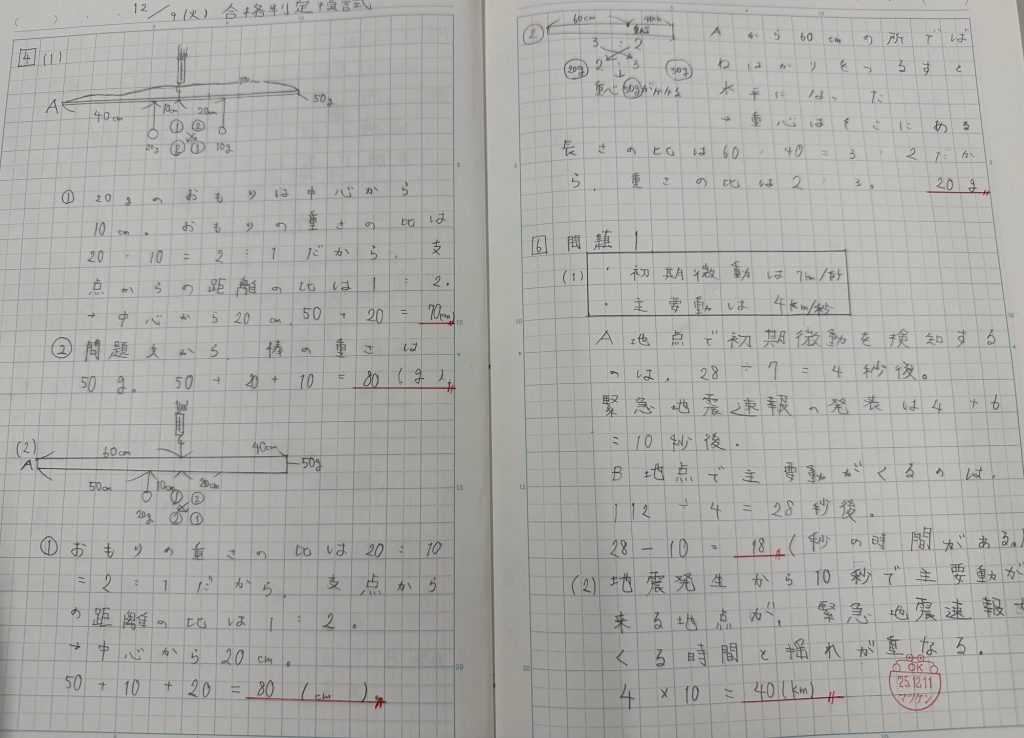 12/9(火) 合格判定模試
4 (1)
100cm
A
50g
40cm 10cm 20cm
① ②
20g ② ① 10g
① 20gのおもりは中心から
10cm。おもりの重さの比は
20:10=2:1だから、支
点からの距離の比は1:2。
→中心から20cm。50+20=70(cm)
② 問題文から、棒の重さは
50g。50+20+10=80(g)
(2)
60cm 40cm
A
50g
50cm 10cm 20cm
① ②
20g ② ①
① おもりの重さの比は20:10
=2:1だから、支点から
の距離の比は1:2。
→中心から20cm。
50+10+20=80(cm)
② 60cm 40cm
重心
3:2
20g 2:3 30g
重心50gがかかる
Aから60cmの所でば
ねはかりをつるすと
水平になった
→重心はそこにある
長さの比は60:40=3:2だか
ら、重さの比は2:3。 20g
6 問題1
(1) ・初期微動は7km/秒
・主要動は4km/秒
A地点で初期微動を検知する
のは、28÷7=4秒後。
緊急地震速報の発表は4+6
=10秒後。
B地点で主要動がくるのは、
112÷4=28秒後。
28-10=18(秒の時間がある。)
(2) 地震発生から10秒で主要動が
来る地点が、緊急地震速報が
くる時間と揺れが重なる。
4×10=40(km)
OK
25.12.11
マツケン